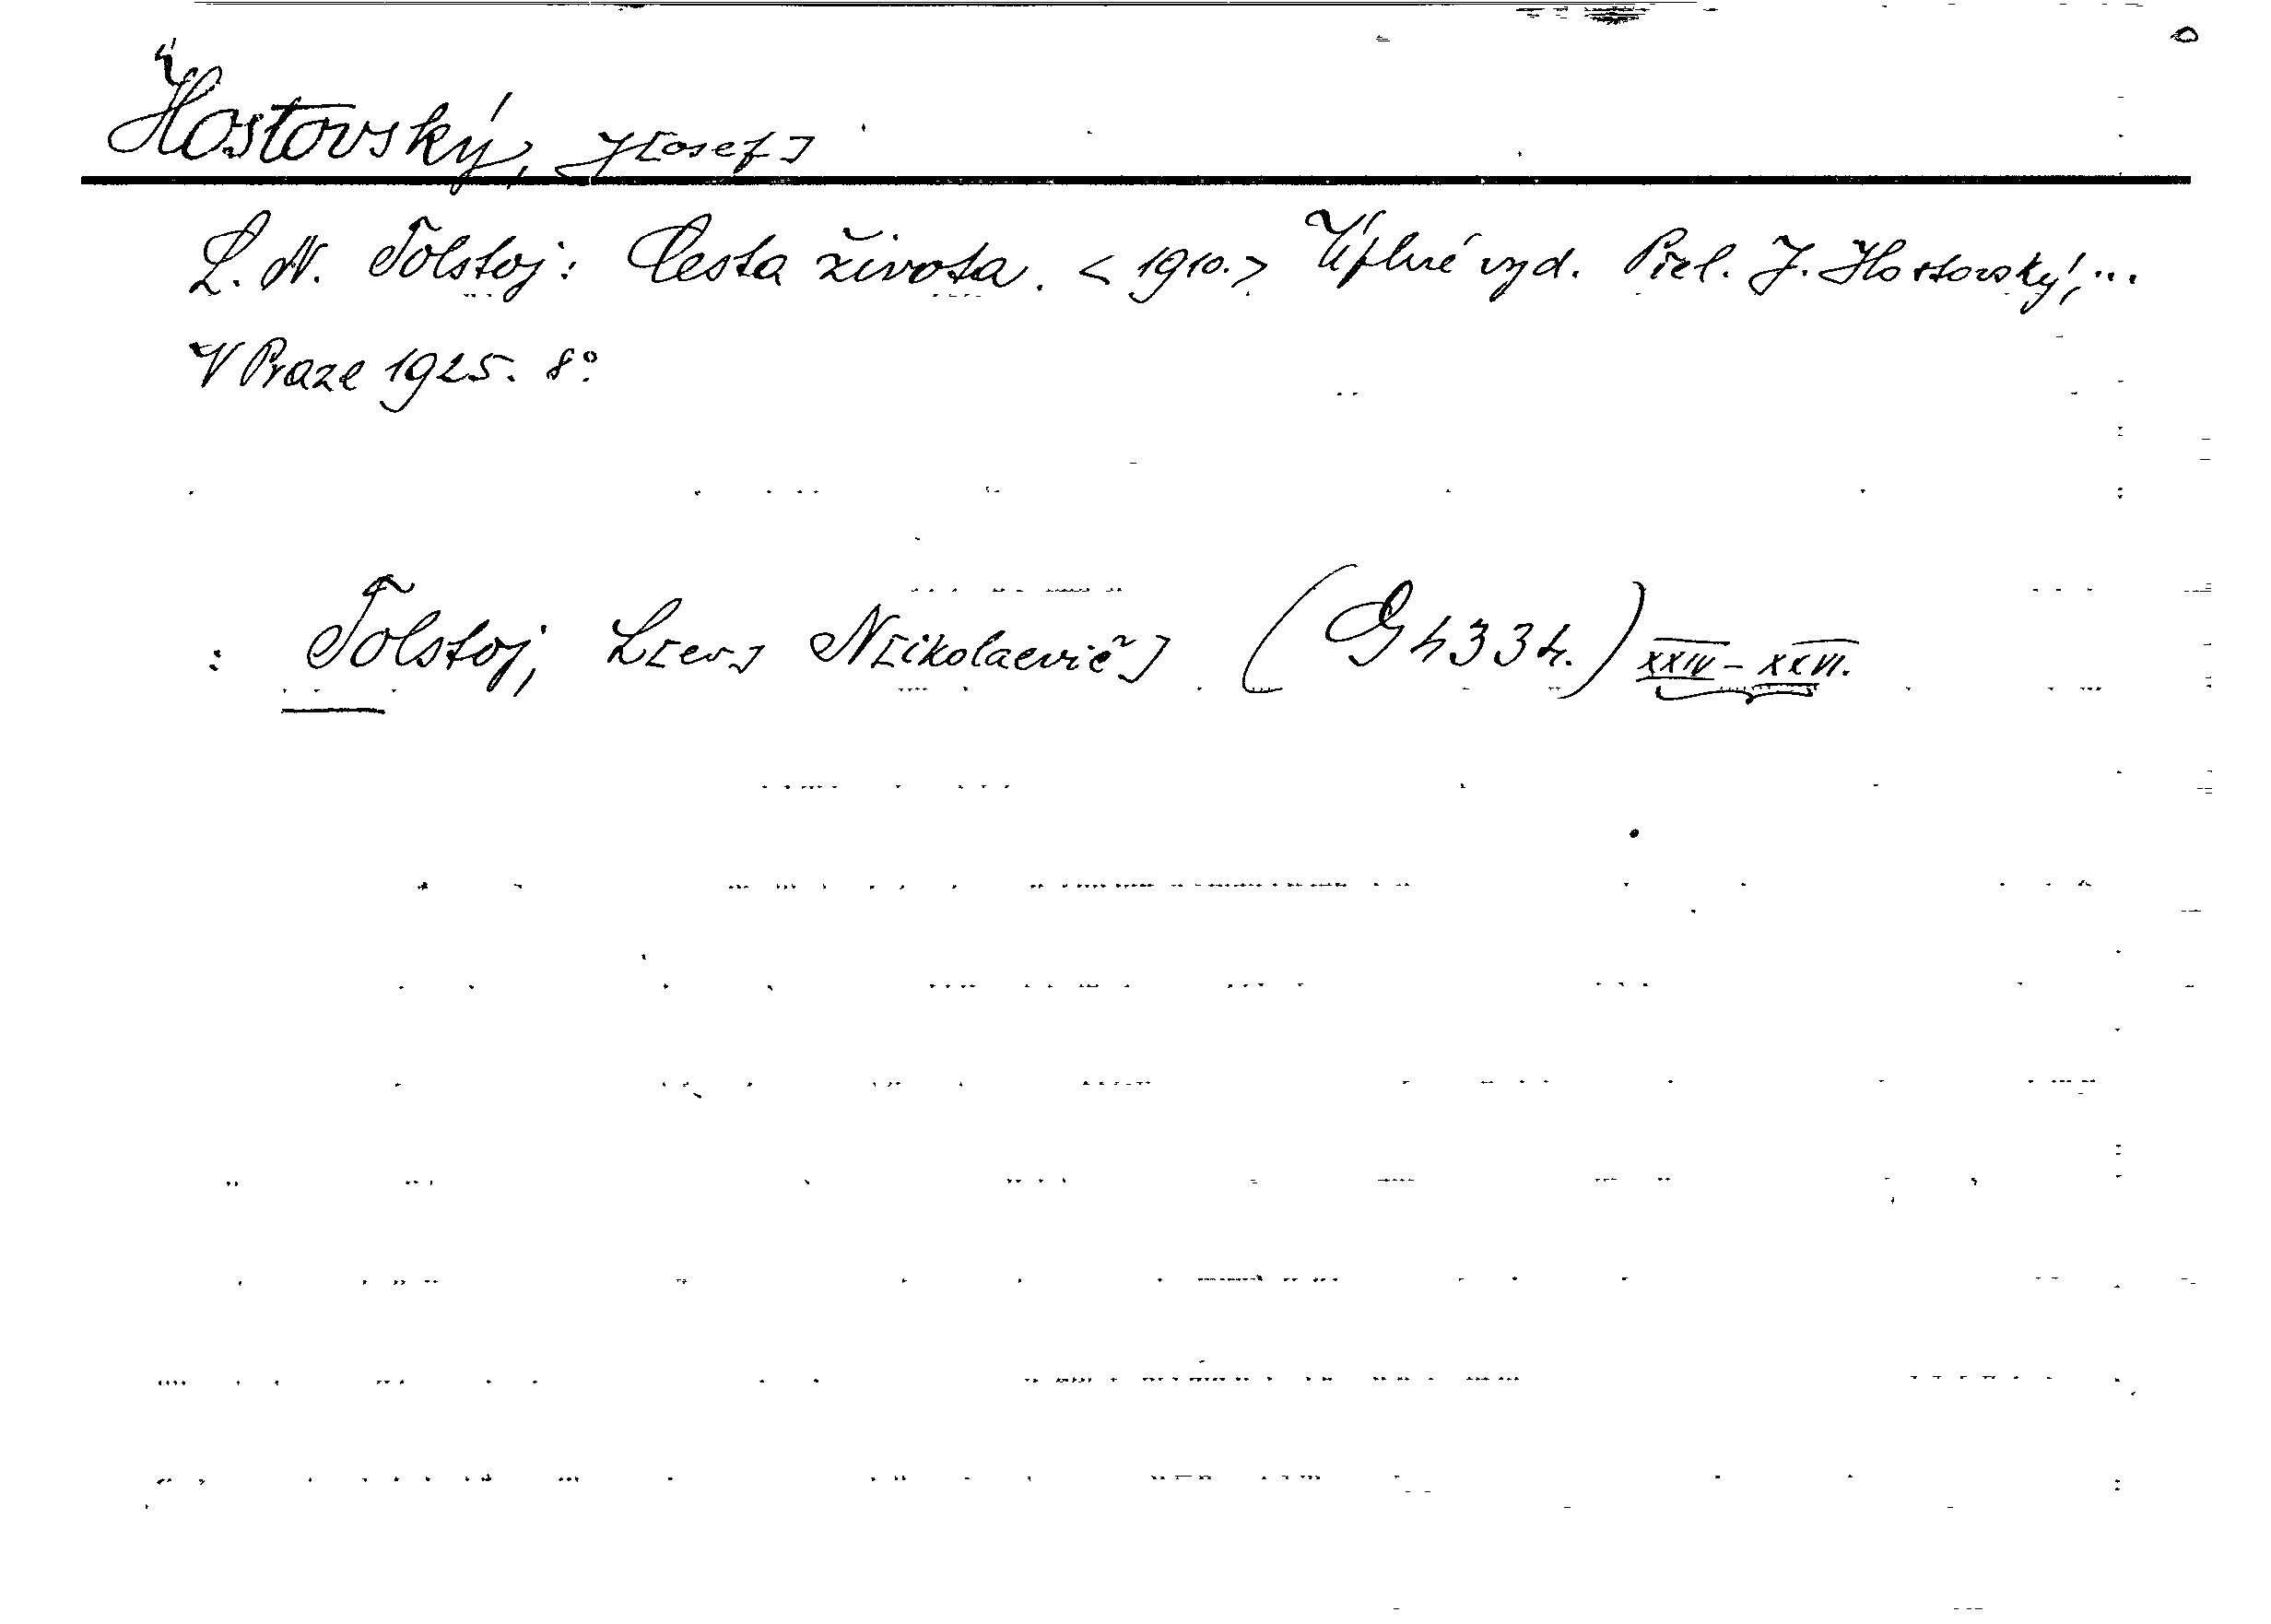 Hostovský, J[osef]
L. N. Tolstoj: Cesta života. < 1910.> Úplné vyd. Přel. J. Hostovský,...
V Praze 1925. 8°.
: Tolstoj, L[ev] N[ikolaevič] (G 4334.) XXIV-XXVI.